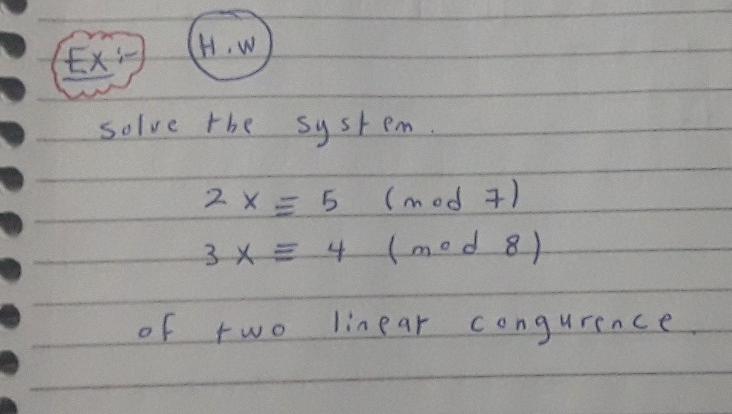 Ex:- H.W
solve the system.
2x ≡ 5 (mod 7)
3x ≡ 4 (mod 8)
of two linear congurence.